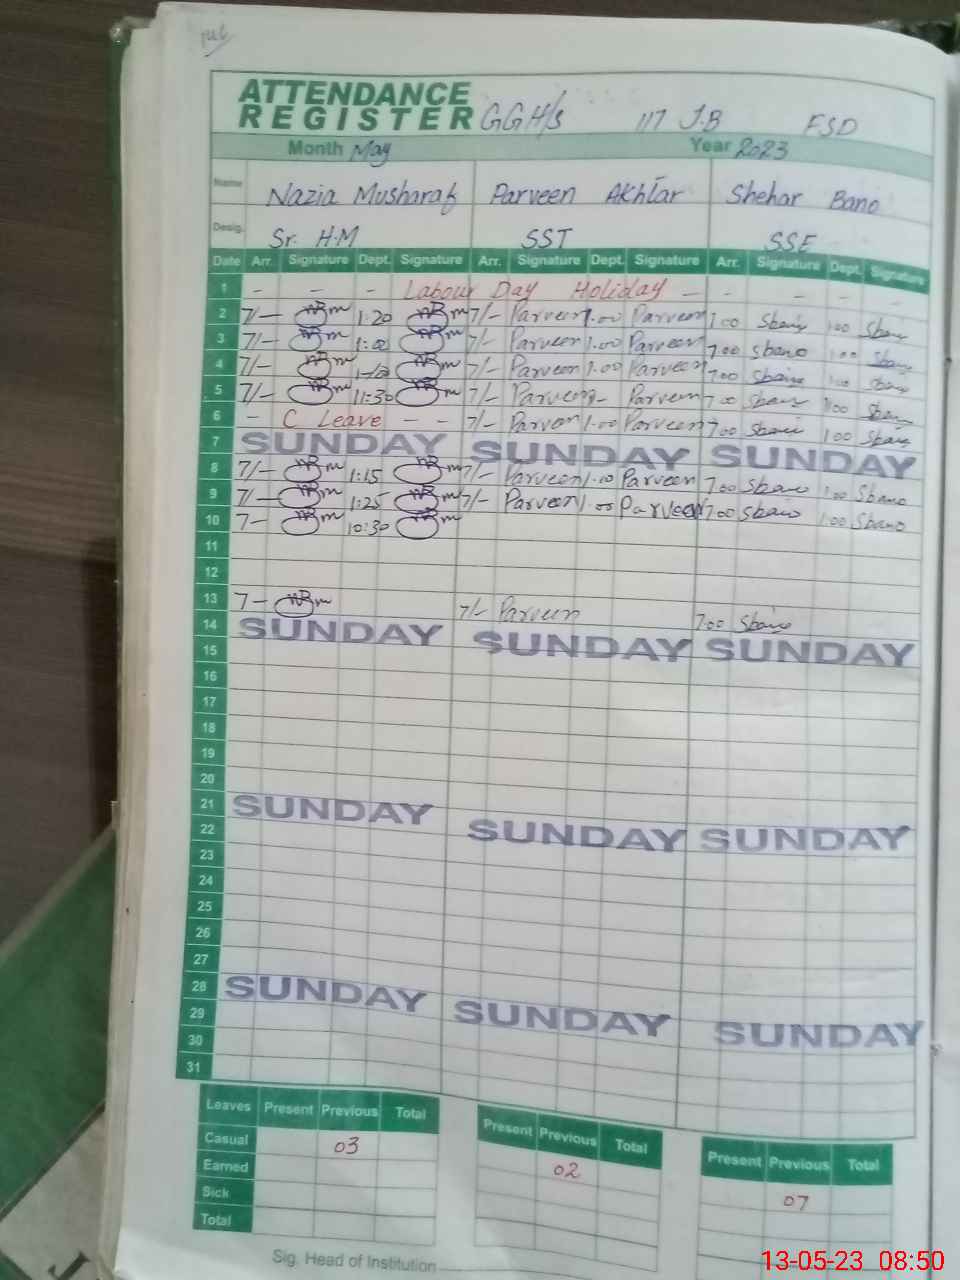 ATTENDANCE
REGISTER GGH/S 117 J.B FSD
Month May Year 2023
Name Nazia Musharaf Parveen Akhtar Shehar Bano
Desig. Sr. H.M SST SSE
Date Arr. Signature Dept. Signature Arr. Signature Dept. Signature Arr. Signature Dept. Signature
1 - - - Labour Day Holiday - - - -
2 7/- 1:20 7/- Parveen 1.00 Parveen 7.00 Sbano 1.00 Sbano
3 7/- 7/- Parveen 1.00 Parveen 7.00 Sbano 1.00 Sbano
4 7/- 7/- Parveen 1.00 Parveen 7.00 Sbano 1.00 Sbano
5 7/- 11:30 7/- Parveen Parveen 7.00 Sbano 1.00 Sbano
6 - C Leave - - 7/- Parveen 1.00 Parveen 7.00 Sbano 1.00 Sbano
7 SUNDAY SUNDAY SUNDAY
8 7/- 1:15 7/- Parveen 1.00 Parveen 7.00 Sbano 1.00 Sbano
9 7/- 1:25 7/- Parveen 1.00 Parveen 7.00 Sbano 1.00 Sbano
10 7- 10:30
11
12
13 7- 7/- Parveen 7.00 Sbano
14 SUNDAY SUNDAY SUNDAY
15
16
17
18
19
20
21 SUNDAY SUNDAY SUNDAY
22
23
24
25
26
27
28 SUNDAY SUNDAY SUNDAY
29
30
31
Leaves Present Previous Total Present Previous Total Present Previous Total
Casual 03 02 07
Earned
Sick
Total
Sig. Head of Institution
13-05-23 08:50